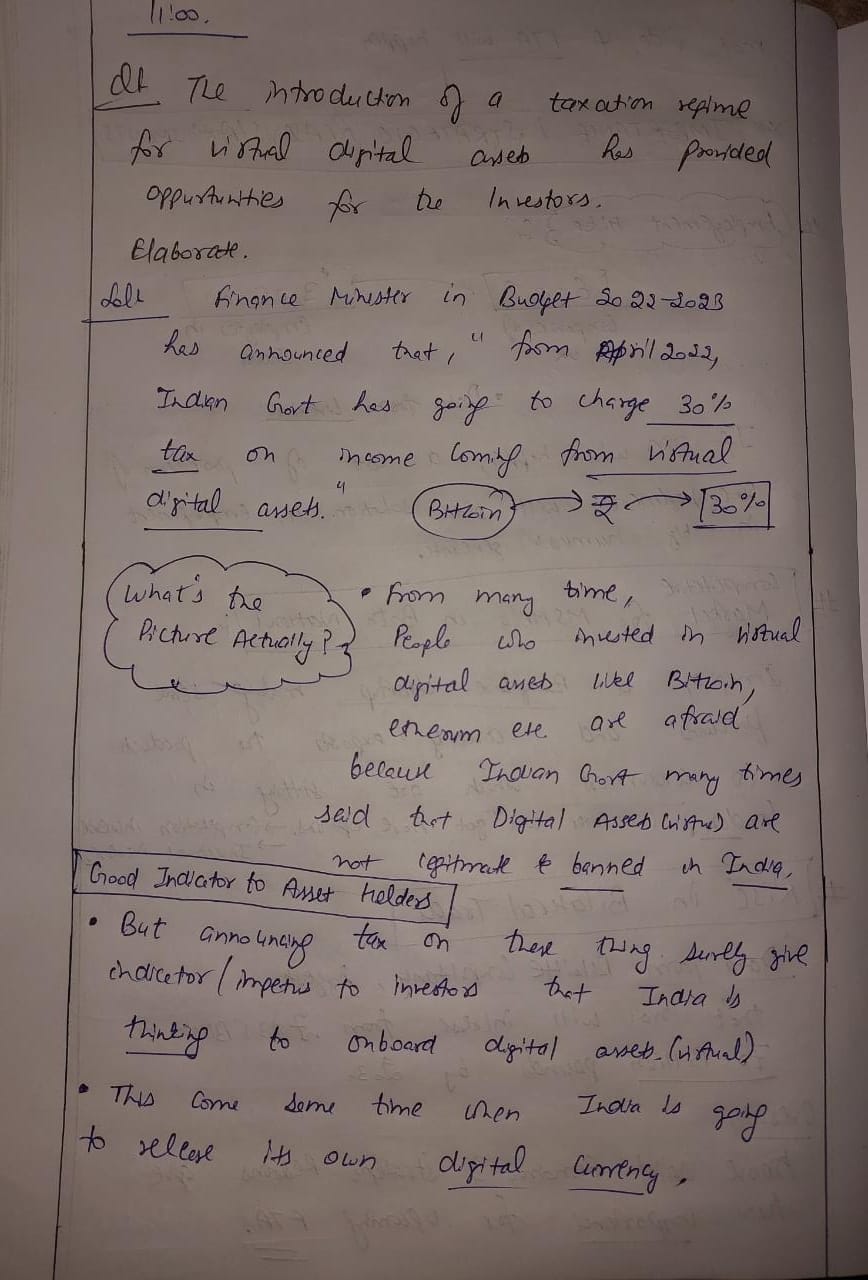 11:00.
Q1 The introduction of a taxation regime
for virtual digital assets has provided
oppurtunities for the Investors.
Elaborate.
Sol: Finance Minister in Budget 2022-2023
has announced that, " from April 2022,
Indian Govt has going to charge 30%
tax on income coming from virtual
digital assets." Bitcoin → ₹ → 30%
What's the
Picture Actually?
• From many time,
People who invested in virtual
digital assets like Bitcoin,
etherum etc. are afraid
because Indian Govt many times
said that Digital Assets (virtual) are
not legitmate & banned in India.
Good Indicator to Asset Holders
• But announcing tax on these thing surely give
indicator/impetus to investors that India is
thinking to onboard digital assets. (virtual)
• This come same time when India is going
to release its own digital currency.